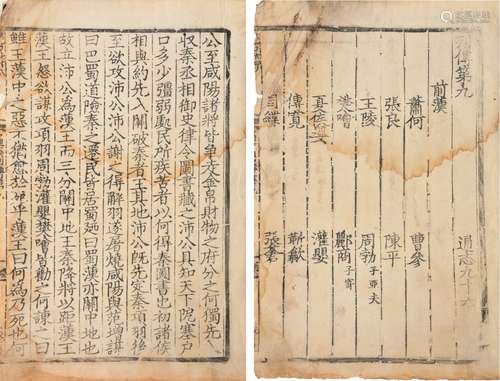 列傳第九 通志九十六
前漢
蕭何 曹參
張良 陳平
王陵 周勃 子亞夫
樊噲 酈商 子寄
夏侯嬰 灌嬰
傅寬 靳歙
周緤 張蒼
公至咸陽諸將皆爭走金帛財物之府分之何獨先
收秦丞相御史律令圖書藏之沛公具知天下阨塞戶
口多少彊弱處民所疾苦者以何得秦圖書也初諸侯
相與約先入關破秦者王其地沛公既先定秦項羽後
至欲攻沛公沛公謝之得解羽遂屠燒咸陽與范增謀
曰巴蜀道險秦之遷民皆居蜀廼曰蜀漢亦關中地也
故立沛公為漢王而三分關中地王秦降將以距漢王
漢王怒欲謀攻項羽周勃灌嬰樊噲皆勸之何諫之曰
雖王漢中之惡不猶愈於死乎漢王曰何為乃死也何